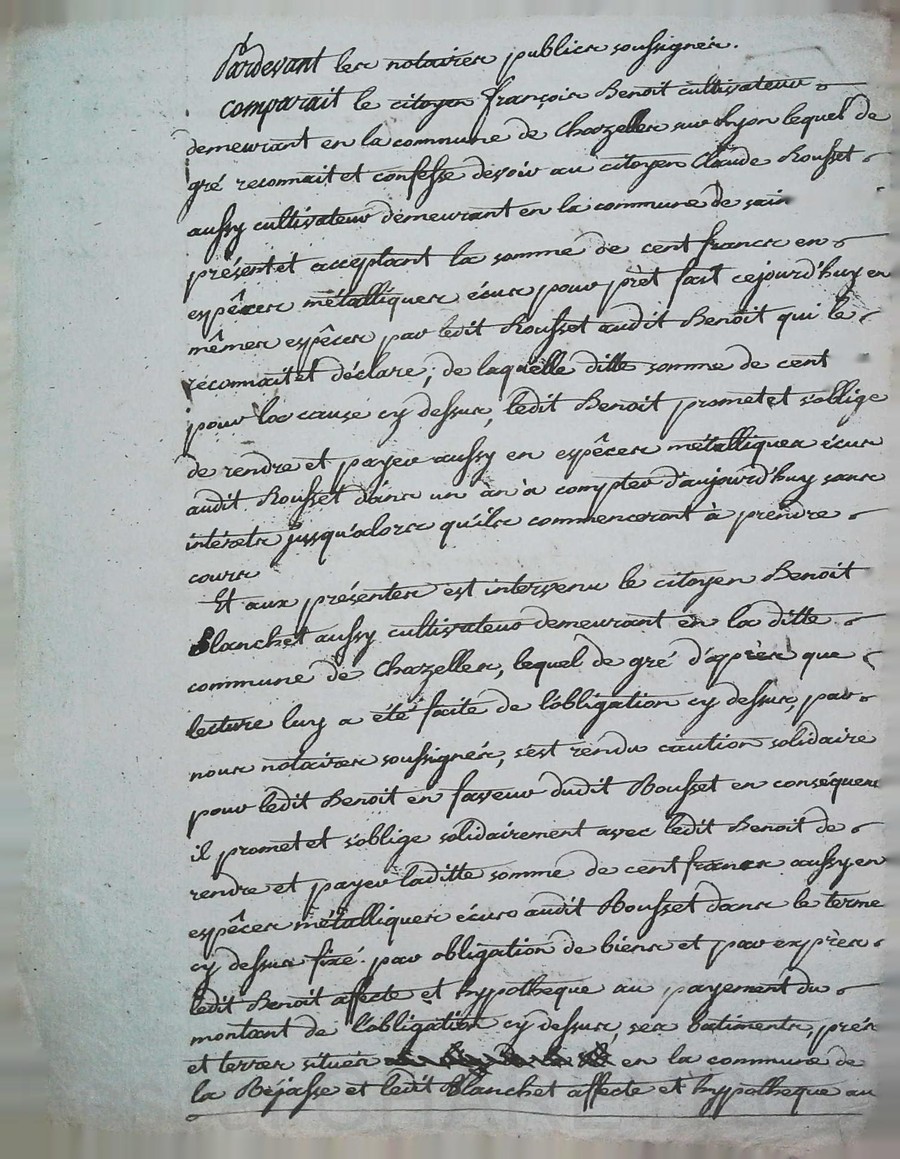 Pardevant les notaires publics soussignés.
comparait le citoyen françois Benoit cultivateur
demeurant en la commune de Chazelles sur Lyon lequel de
gré reconnait et confesse devoir au citoyen Claude Rousset
aussy cultivateur demeurant en la commune de
présent et acceptant la somme de cent francs en
espêces métalliques écus pour prèt fait cejourd'huy en
mêmes espêces par ledit Rousset audit Benoit qui le
réconnait et déclare; de laquelle ditte somme de cent
pour las cause cy dessus, ledit Benoit promet et s'oblige
de rendre et payer aussy en espêces métalliques écus
audit Rousset dans un an a compter d'aujourd'huy sans
intérets jusqu'alors qu'ils commenceront à prendre
cours
Et aux présentes est intervenu le citoyen Benoit
Blanchet aussy cultivateur demeurant en la ditte
commune de Chazelles, lequel de gré d'après que
lecture luy a été faite de l'obligation cy dessus, par
nous notaires soussignés, s'est rendu caution solidaire
pour ledit Benoit en faveur dudit Rousset en conséquence
il promet et s'oblige solidairement avec ledit Benoit de
rendre et payer laditte somme de cent francs aussy en
espêces métalliques écus audit Rousset dans le terme
cy dessus fixé. par obligation de biens et par exprès
ledit Benoit affecte et hypotheque au payement du
montant de l'obligation cy dessus, ses batiments, prés
et terres situés en la commune de
la Béjasse et ledit Blanchet affecte et hypotheque au